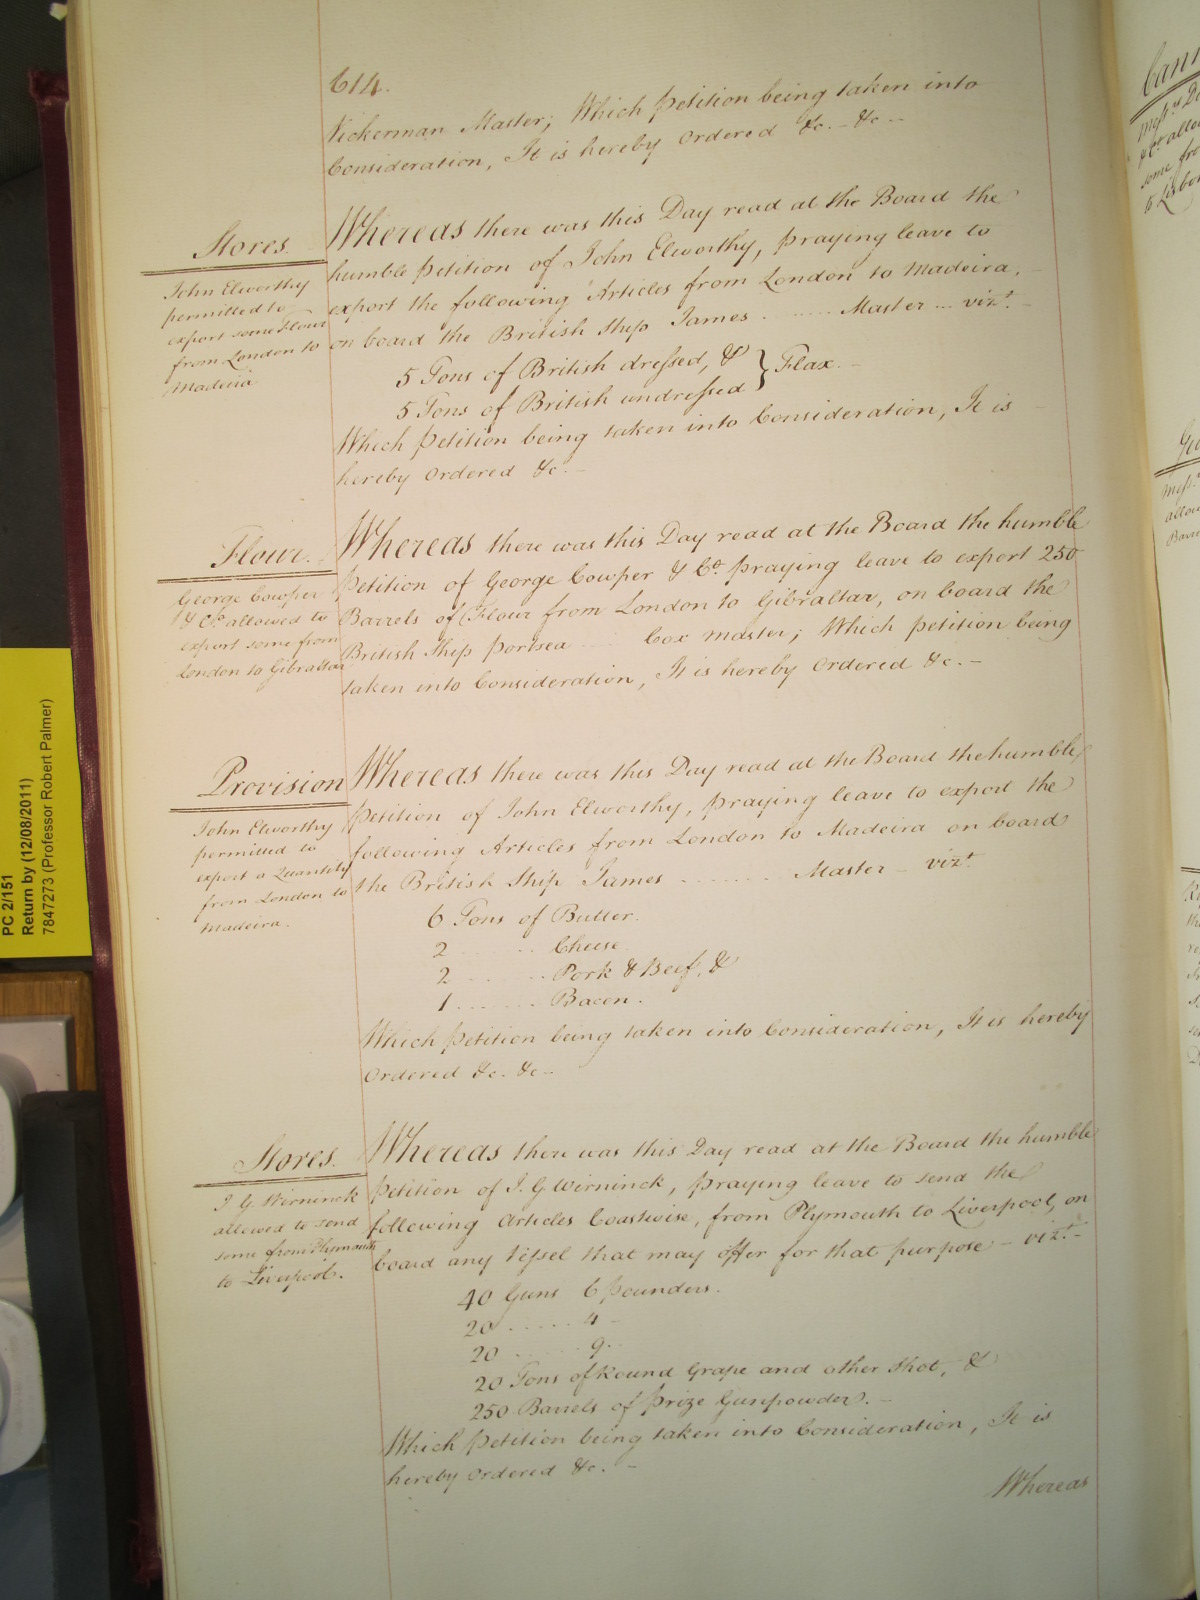 614.
Vickerman Master; Which Petition being taken into
Consideration, It is hereby Ordered &c. - &c -
Stores.
John Elworthy
permitted to
export some Flour
from London to
Madeira
Whereas there was this Day read at the Board the
humble Petition of John Elworthy, praying leave to
export the following Articles from London to Madeira,
on board the British Ship James ........ Master ... vizt. -
5 Tons of British dressed, &
5 Tons of British undressed } Flax. -
Which Petition being taken into Consideration, It is -
hereby Ordered &c. -
Flour.
George Cowper
& Co. allowed to
export some from
London to Gibraltar
Whereas there was this Day read at the Board the humble
Petition of George Cowper & Co. praying leave to export 250
Barrels of Flour from London to Gibraltar, on board the
British Ship Portsea ..... Cox Master; Which Petition being
taken into Consideration, It is hereby Ordered &c. -
Provision
John Elworthy
permitted to
export a Quantity
from London to
Madeira.
Whereas there was this Day read at the Board the humble
Petition of John Elworthy, praying leave to export the
following Articles from London to Madeira on board
the British Ship James ......... Master - vizt.
6 Tons of Butter.
2 ...... Cheese
2 ...... Pork & Beef, &
1 ...... Bacon.
Which Petition being taken into Consideration, It is hereby
Ordered &c. &c -
Stores.
J G. Wirninck
allowed to send
some from Plymouth
to Liverpool.
Whereas there was this Day read at the Board the humble
Petition of J. G. Wirninck, praying leave to send the
following Articles Coastwise, from Plymouth to Liverpool, on
board any Vessel that may offer for that purpose - vizt. -
40 Guns 6 pounders.
20 ...... 4 -
20 ...... 9 -
20 Tons of Round Grape and other Shot, &
250 Barrels of Prize Gunpowder. -
Which Petition being taken into Consideration, It is
hereby Ordered &c. -
Whereas
PC 2/151
Return by (12/08/2011)
7847273 (Professor Robert Palmer)